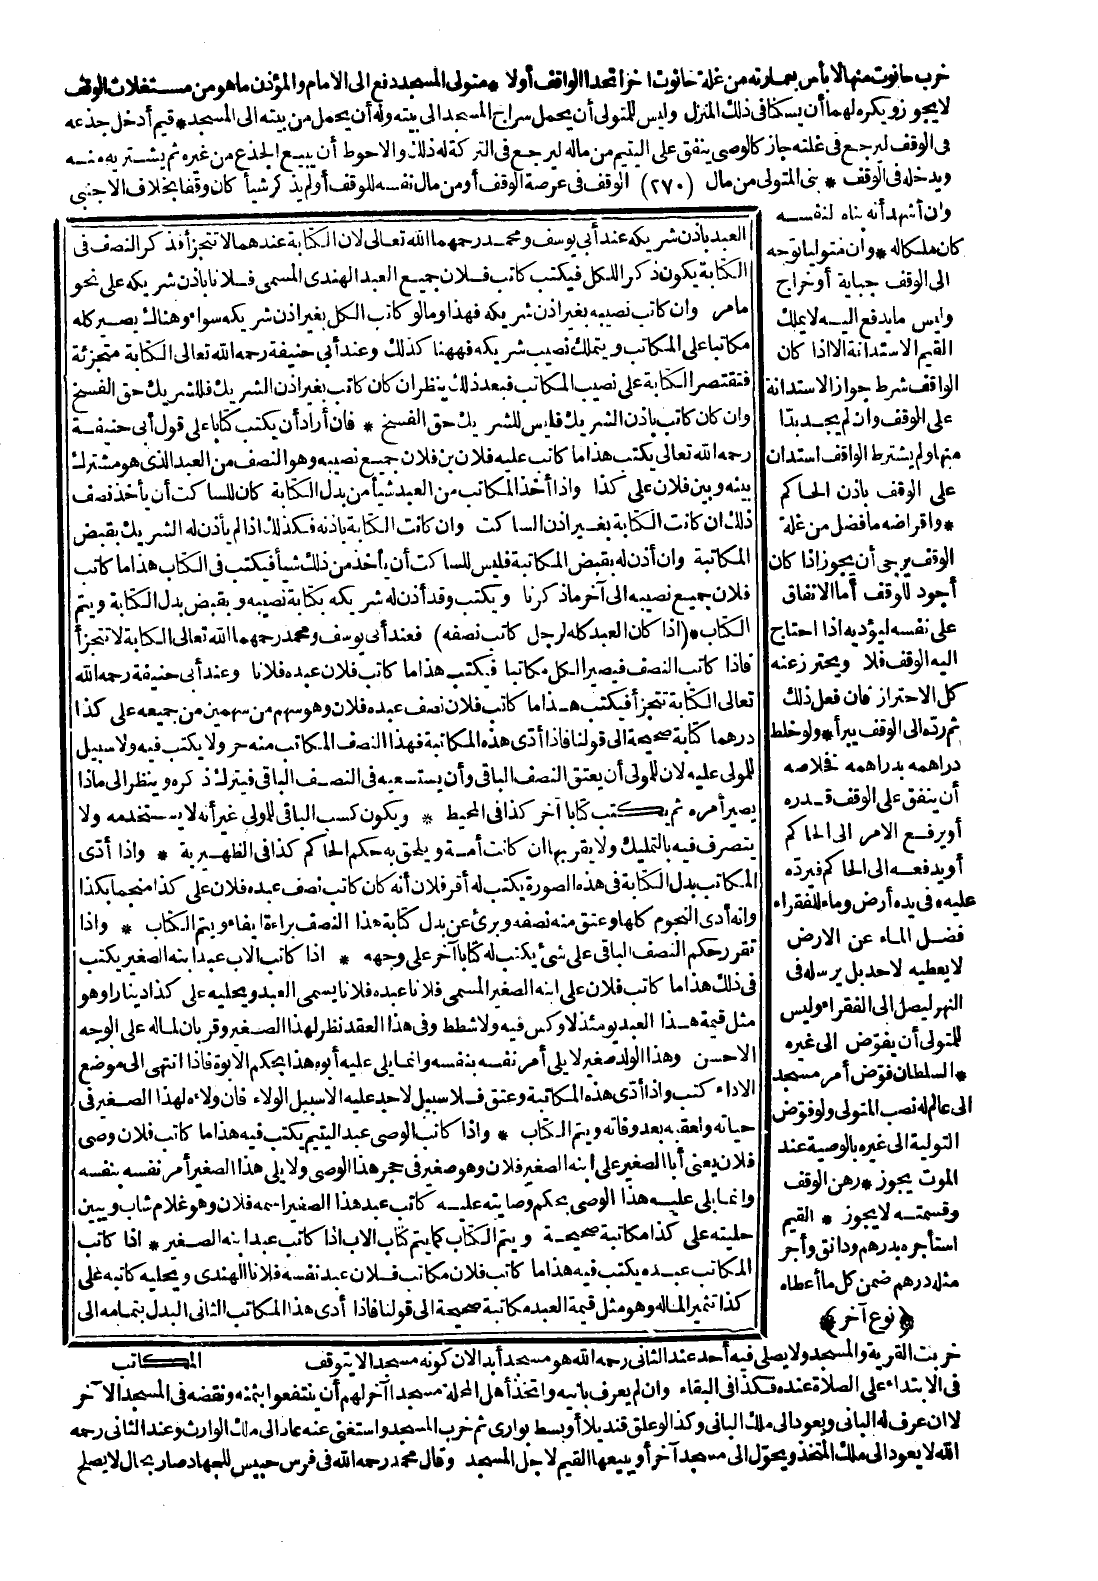 خرب حانوت منها لا بأس بعمارته من غلة حانوت اخر اتحدا الواقف أولا * متولى المسجد دفع الى الامام والمؤذن ما هو من مستغلات الوقف
لا يجوز ويكره لهما أن يسكنا فى ذلك المنزل وليس للمتولى أن يحمل سراج المسجد الى بيته وله أن يحمل من بيته الى المسجد * قيم أدخل جذعه
فى الوقف ليرجع فى غلته جاز كالوصى ينفق على اليتيم من ماله ليرجع فى التركة له ذلك والاحوط أن يبيع الجذع من غيره ثم يشتريه منه
ويدخله فى الوقف * بنى المتولى من مال (٢٧٠) الوقف فى عرصة الوقف أو من مال نفسه للوقف أو لم يذكر شيأ كان وقفا بخلاف الاجنبى
وان أشهد أنه بناه لنفسه
كان ملكا له * وان متوليا توجه
الى الوقف جباية أو خراج
وليس ما يدفع اليه لا يملك
القيم الاستدانة الا اذا كان
الواقف شرط جواز الاستدانة
على الوقف وان لم يجد بدّا
منها ولم يشترط الواقف استدان
على الوقف باذن الحاكم
* واقراضه ما فضل من غلة
الوقف يرجى أن يجوز اذا كان
أجود للوقف أما الانفاق
على نفسه ليؤديه اذا احتاج
اليه الوقف فلا ويحترز عنه
كل الاحتراز فان فعل ذلك
ثم ردّه الى الوقف يبرأ * ولو خلط
دراهمه بدراهمه فخلاصه
أن ينفق على الوقف قدره
أو يرفع الامر الى الحاكم
أو يدفعه الى الحاكم فيردّه
عليه * فى يده أرض وماء للفقراء
فضل الماء عن الارض
لا يعطيه لاحد بل يرسله فى
النهر ليصل الى الفقراء * وليس
للمتولى أن يفوّض الى غيره
* السلطان فوّض أمر مسجد
الى عالم له نصب المتولى ولو فوّض
التولية الى غيره بالوصية عند
الموت يجوز * رهن الوقف
وقسمته لا يجوز * القيم
استأجره بدرهم ودانق وأجر
مثله درهم ضمن كل ما أعطاه
﴿ نوع آخر ﴾
العبد باذن شريكه عند أبى يوسف ومحمد رحمهما الله تعالى لان الكتابة عندهما لا تتجزأ فذكر النصف فى
الكتابة يكون ذكر الكل فيكتب كاتب فلان جميع العبد الهندى المسمى فلانا باذن شريكه على نحو
ما مر وان كاتب نصيبه بغير اذن شريكه فهذا وما لو كاتب الكل بغير اذن شريكه سواء وهناك يصير كله
مكاتبا على المكاتب ويتملك نصيب شريكه فههنا كذلك وعند أبى حنيفة رحمه الله تعالى الكتابة متجزئة
فتقتصر الكتابة على نصيب المكاتب فبعد ذلك ينظر ان كان كاتب بغير اذن الشريك فللشريك حق الفسخ
وان كان كاتب باذن الشريك فليس للشريك حق الفسخ * فان أراد أن يكتب كتابا على قول أبى حنيفة
رحمه الله تعالى يكتب هذا ما كاتب عليه فلان بن فلان جميع نصيبه وهو النصف من العبد الذى هو مشترك
بينه وبين فلان على كذا واذا أخذ المكاتب من العبد شيأ من بدل الكتابة كان للساكت أن يأخذ نصف
ذلك ان كانت الكتابة بغير اذن الساكت وان كانت الكتابة باذنه فكذلك اذا لم يأذن له الشريك بقبض
المكاتبة وان أذن له بقبض المكاتبة فليس للساكت أن يأخذ من ذلك شيأ فيكتب فى الكتاب هذا ما كاتب
فلان جميع نصيبه الى آخر ما ذكرنا ويكتب وقد أذن له شريكه بكتابة نصيبه وبقبض بدل الكتابة ويتم
الكتاب * (اذا كان العبد كله لرجل كاتب نصفه) فعند أبى يوسف ومحمد رحمهما الله تعالى الكتابة لا تتجزأ
فاذا كاتب النصف فيصير الكل مكاتبا فيكتب هذا ما كاتب فلان عبده فلانا وعند أبى حنيفة رحمه الله
تعالى الكتابة تتجزأ فيكتب هذا ما كاتب فلان نصف عبده فلان وهو سهم من سهمين من جميعه على كذا
درهما كتابة صحيحة الى قولنا فاذا أدّى هذه المكاتبة فهذا النصف المكاتب منه حر ولا يكتب فيه ولا سبيل
للمولى عليه لان للمولى أن يعتق النصف الباقى وأن يستسعيه فى النصف الباقى فيترك ذكره وينظر الى ماذا
يصير أمره ثم يكتب كتابا آخر كذا فى المحيط * ويكون كسب الباقى للمولى غير أنه لا يستخدمه ولا
يتصرف فيه بالتمليك ولا يقربها ان كانت أمة ويلحق به حكم الحاكم كذا فى الظهيرية * واذا أدّى
المكاتب بدل الكتابة فى هذه الصورة يكتب له أقر فلان أنه كان كاتب نصف عبده فلان على كذا منجما بكذا
وانه أدى النجوم كلها وعتق منه نصفه وبرئ عن بدل كتابة هذا النصف براءة ايفاء ويتم الكتاب * واذا
تقرر حكم النصف الباقى على شئ يكتب له كتابا آخر على وجهه * اذا كاتب الاب عبد ابنه الصغير يكتب
فى ذلك هذا ما كاتب فلان على ابنه الصغير المسمى فلانا عبده فلانا يسمى العبد ويحليه على كذا دينارا وهو
مثل قيمة هذا العبد يومئذ لا وكس فيه ولا شطط وفى هذا العقد نظر لهذا الصغير وقربان لماله على الوجه
الاحسن وهذا الولد صغير لا يلى أمر نفسه بنفسه وانما يلى عليه أبوه هذا بحكم الابوة فاذا انتهى الى موضع
الاداء كتب واذا أدّى هذه المكاتبة وعتق فلا سبيل لاحد عليه الا سبيل الولاء فان ولاءه لهذا الصغير فى
حياته ولعقبه بعد وفاته ويتم الكتاب * واذا كاتب الوصى عبد اليتيم يكتب فيه هذا ما كاتب فلان وصى
فلان يعنى أبا الصغير على ابنه الصغير فلان وهو صغير فى حجر هذا الوصى ولا يلى هذا الصغير أمر نفسه بنفسه
وانما يلى عليه هذا الوصى بحكم وصايته عليه كاتب عبد هذا الصغير اسمه فلان وهو غلام شاب ويبين
حليته على كذا مكاتبة صحيحة ويتم الكتاب كما يتم كتاب الاب اذا كاتب عبد ابنه الصغير * اذا كاتب
المكاتب عبده يكتب فيه هذا ما كاتب فلان مكاتب فلان عبد نفسه فلانا الهندى ويحليه كاتبه على
كذا تثمير الماله وهو مثل قيمة العبد مكاتبة صحيحة الى قولنا فاذا أدى هذا المكاتب الثانى البدل بتمامه الى
المكاتب
خربت القرية والمسجد ولا يصلى فيه أحد عند الثانى رحمه الله هو مسجد أبدا لان كونه مسجدا لا يتوقف
فى الابتداء على الصلاة عنده فكذا فى البقاء وان لم يعرف بانيه واتخذ أهل المحلة مسجدا آخر لهم أن ينتفعوا بثمنه ونقضه فى المسجد الآخر
لا ان عرف له البانى ويعود الى ملك البانى وكذا لو علق قنديلا أو بسط بوارى ثم خرب المسجد واستغنى عنه عاد الى ملك الوارث وعند الثانى رحمه
الله لا يعود الى ملك المتخذ ويحوّل الى مسجد آخر أو يبيعها القيم لاجل المسجد وقال محمد رحمه الله فى فرس حبيس للجهاد صار بحال لا يصلح